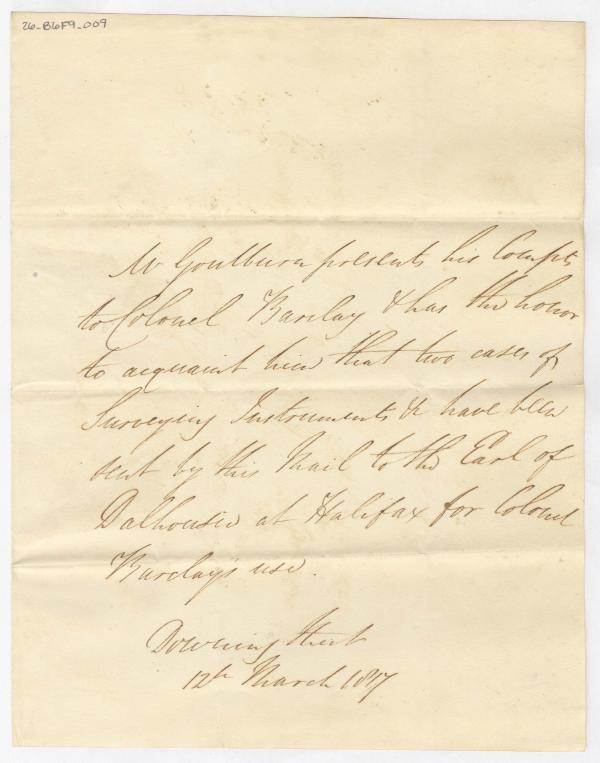 26-B6F9-009
Mr Goulburn presents his Compts
to Colonel Barclay & has the honor
to acquaint him that two cases of
Surveying Instruments &c have been
sent by this Mail to the Earl of
Dalhousie at Halifax for Colonel
Barclay's use.
Downing Street
12th March 1817